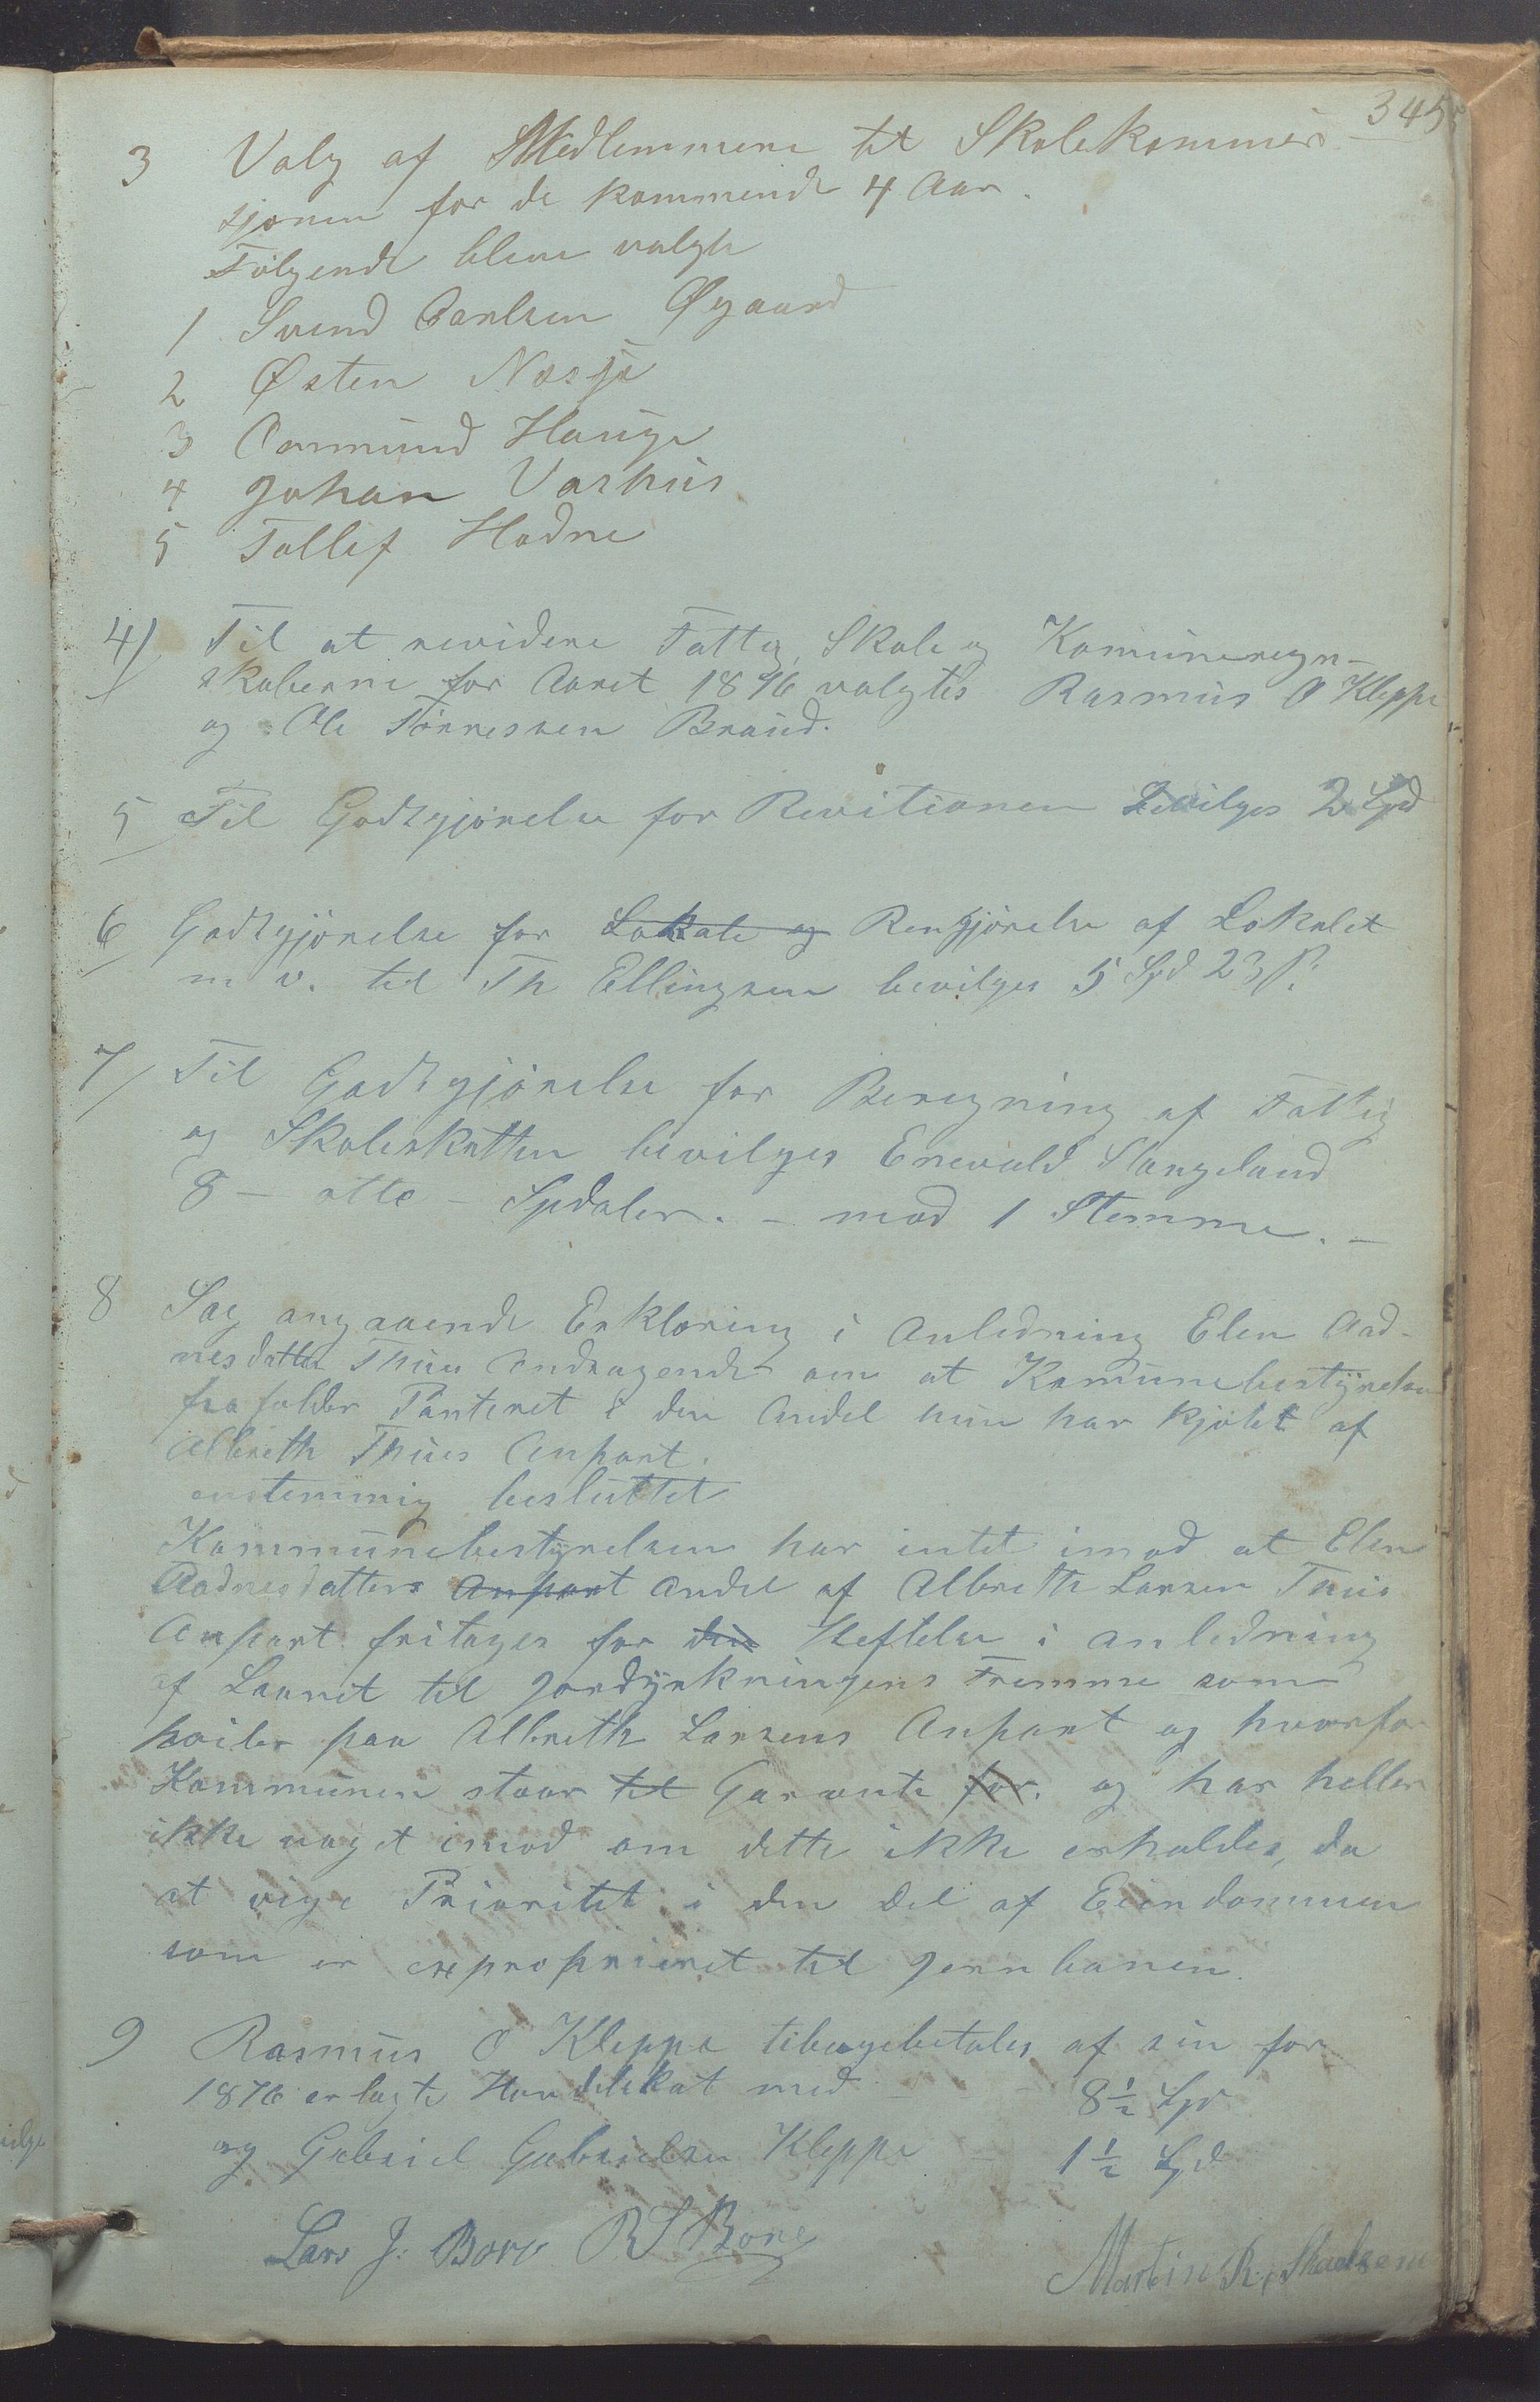 345
3 Valg af Medlemmene til Skolekommis-
sjonen for de kommende 4 Aar.
Følgende bleve valgte
1 Svend Carlsen Øgaard
2 Østen Næsje
3 Ommund Hauge
4 Johan Vashus
5 Tollef Hodne
4/ Til at revidere Fattig, Skole og Komuneregn-
skaberne for Aaret 1876 valgtes Rasmus O Kleppe
og Ole Tønnessen Braud.
5 Til Godtgjørelse for Revitionen bevilges 2 Spd
6 Godtgjørelse for Lokale og Rengjørelse af Lokalet
m v. til Th Ellingsen bevilges 5 Spd 23 ß.
7/ Til Godtgjørelse for Beregning af Fattig
og Skoleskatten bevilges Enevald Stangeland
8 – otte – Spdaler. – mod 1 Stemme. –
8 Sag angaaende Erklæring i Anledning Elen Aad-
nesdatter Thues Andragende om at Komunebestyrelsen
frafalder Panteret i den Andel hun har kjøbt af
Albreth Thues Anpart.
enstemmig besluttet
Kommunebestyrelsen har intet imod at Elen
Aadnesdatters Anpart Andel af Albreth Larsen Thus
Anpart fritages for den Heftelse i anledning
af Laanet til Jorddyrkningens Fremme som
hviler paa Albreth Larsens Anpart og hvorfor
Kommunen staar til Garante for. og har heller
ikke noget imod om dette ikke erholdes, da
at vige Prioritet i den Del af Eiendommen
som er exproprieret til Jernbanen.
9 Rasmus O Kleppe tibagebetales af sin for
1876 erlagte Handelskat med – 8½ Spd
og Gabriel Gabrielsen Kleppe – 1½ Spd
Lars J. Bore R S Bore
Martin R. Skadsem